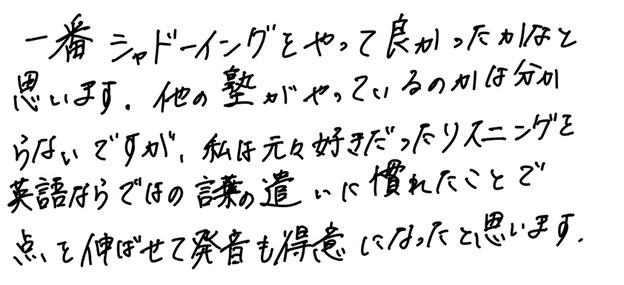 一番シャドーイングをやって良かったかなと
思います。他の塾がやっているのかは分か
らないですが、私は元々好きだったリスニングを
英語ならではの言葉の遣いに慣れたことで
点を伸ばせて発音も得意になったと思います。